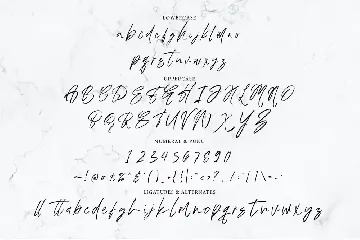 LOWERCASE
abcdefghijklmno
pqrstuvwxyz
UPPERCASE
ABCDEFGHIJKLMNO
PQRSTUVWXYZ
NUMERAL & PUNC
1234567890
LIGATURES & ALTERNATES
ll tt abcdefghijklmnopqrstuvwxyz